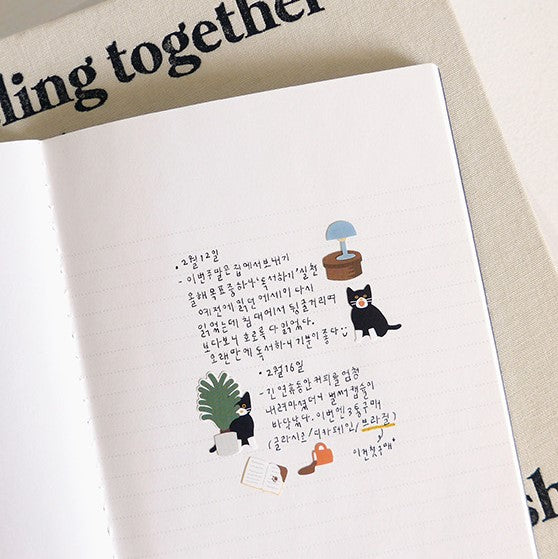 ling together
• 2월 12일
- 이번주말은 집에서 보내기
올해 목표중 하나 '독서하기' 실천
예전에 읽던 에세이 다시
읽었는데 침대에서 뒹굴거리며
보다보니 호로록 다 읽었다.
오랜만에 독서하니 기분이 좋다
• 2월 16일
- 긴 연휴동안 커피를 엄청
내려마셨더니 벌써 캡슐이
바닥났다. 이번엔 3통구매
(글라시로/디카페인/브라질)
이건 첫구매
sh